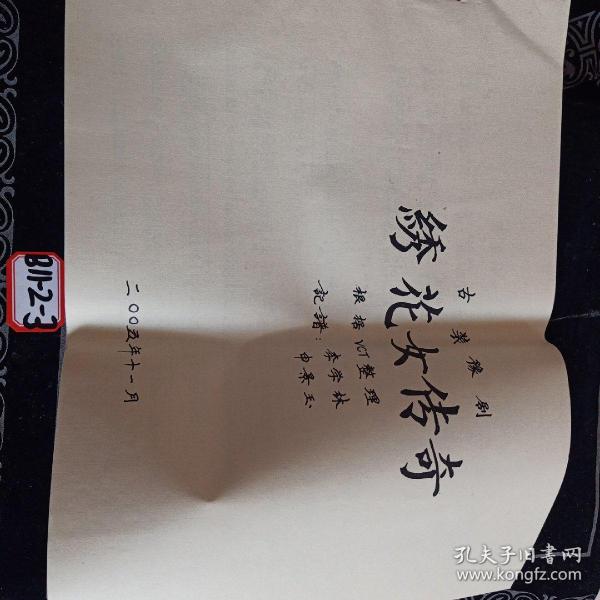 古装豫剧
绣花女传奇
根据VCT整理
记谱：李学林
申景玉
二〇〇五年十一月
B11-2-3
孔夫子旧书网
www.kongfz.com